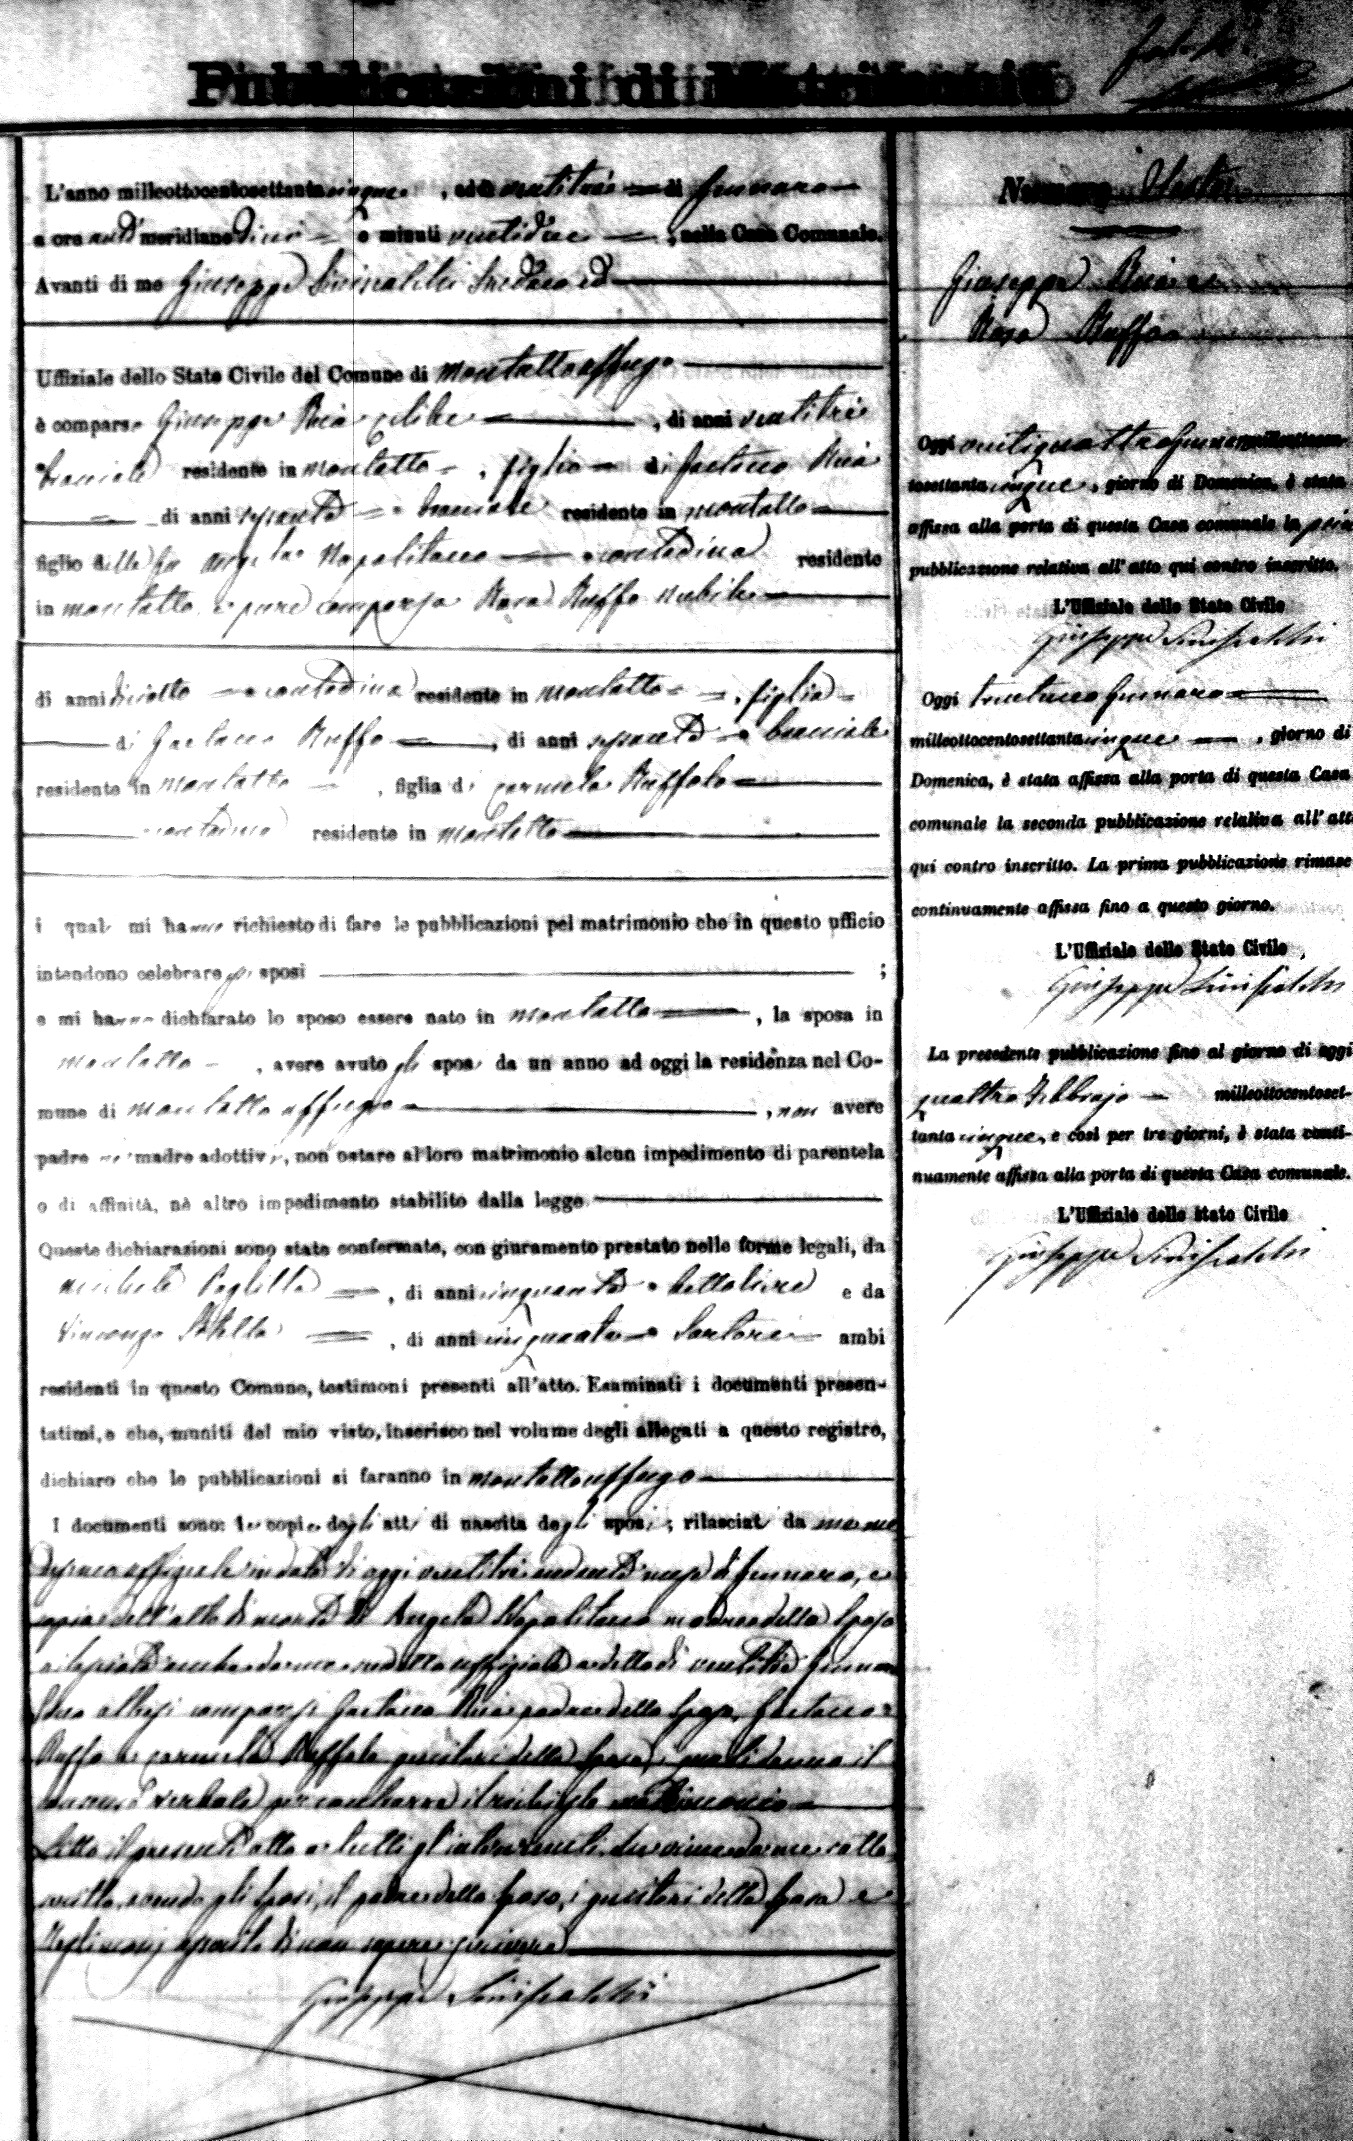 Pubblicazioni di Matrimonio
L'anno milleottocentosettanta cinque, addì ventitrè di Gennaro
a ore anti meridiane dieci e minuti ventidue, nella Casa Comunale.
Avanti di me Giuseppe Sinisalchi Sindaco ed
Uffiziale dello Stato Civile del Comune di Montalto Uffugo
è comparso Giuseppe Ricca celibe, di anni ventitrè
bracciale residente in Montalto, figlio di Gaetano
di anni sessanta bracciale residente in Montalto
figlio della fu Angela Napolitano contadina residente
in Montalto, e pure comparsa Rosa Ruffo nubile
di anni diciotto contadina residente in Montalto, figlia
di Gaetano Ruffo, di anni sessanta bracciale
residente in Montalto, figlia di Carmela Ruffolo
contadina residente in Montalto
i quali mi hanno richiesto di fare le pubblicazioni pel matrimonio che in questo ufficio
intendono celebrare gli sposi ;
e mi hanno dichiarato lo sposo essere nato in Montalto, la sposa in
Montalto, avere avuto gli sposi da un anno ad oggi la residenza nel Co-
mune di Montalto Uffugo, non avere
padre nè madre adottivi, non ostare al loro matrimonio alcun impedimento di parentela
o di affinità, nè altro impedimento stabilito dalla legge.
Queste dichiarazioni sono state confermate, con giuramento prestato nelle forme legali, da
Michele, di anni cinquanta e da
Vincenzo, di anni cinquanta Sartore ambi
residenti in questo Comune, testimoni presenti all'atto. Esaminati i documenti presen-
tatimi, e che, muniti del mio visto, inserisco nel volume degli allegati a questo registro,
dichiaro che le pubblicazioni si faranno in Montalto Uffugo
I documenti sono: le copie degli atti di nascita degli sposi; rilasciati da me
in data di oggi ventitrè andante mese di Gennaro, e
copia dell'atto di morte di Angela Napolitano madre dello sposo
rilasciata anche da me ventitrè
comparsi Gaetano padre dello sposo, Gaetano
Ruffo e Carmela Ruffolo genitori della sposa, quali danno il
consenso verbale per contrarre il matrimonio
Letto il presente atto a tutti gl'intervenuti, da me
avendo gli sposi, il padre dello sposo, i genitori della sposa e
testimoni asserito di non sapere scrivere
Giuseppe Sinisalchi
Numero
Giuseppe Ricca e
Rosa Ruffo
Oggi ventiquattro Gennaro milleottocen-
tosettanta cinque, giorno di Domenica, è stata
affissa alla porta di questa Casa comunale la prima
pubblicazione relativa all'atto qui contro inscritto.
L'Uffiziale dello Stato Civile
Giuseppe Sinisalchi
Oggi trentuno Gennaro
milleottocentosettanta cinque, giorno di
Domenica, è stata affissa alla porta di questa Casa
comunale la seconda pubblicazione relativa all'atto
qui contro inscritto. La prima pubblicazione rimase
continuamente affissa fino a questo giorno.
L'Uffiziale dello Stato Civile
Giuseppe Sinisalchi
La precedente pubblicazione fino al giorno di oggi
quattro Febbrajo milleottocentoset-
tanta cinque, e così per tre giorni, è stata conti-
nuamente affissa alla porta di questa Casa comunale.
L'Uffiziale dello Stato Civile
Giuseppe Sinisalchi